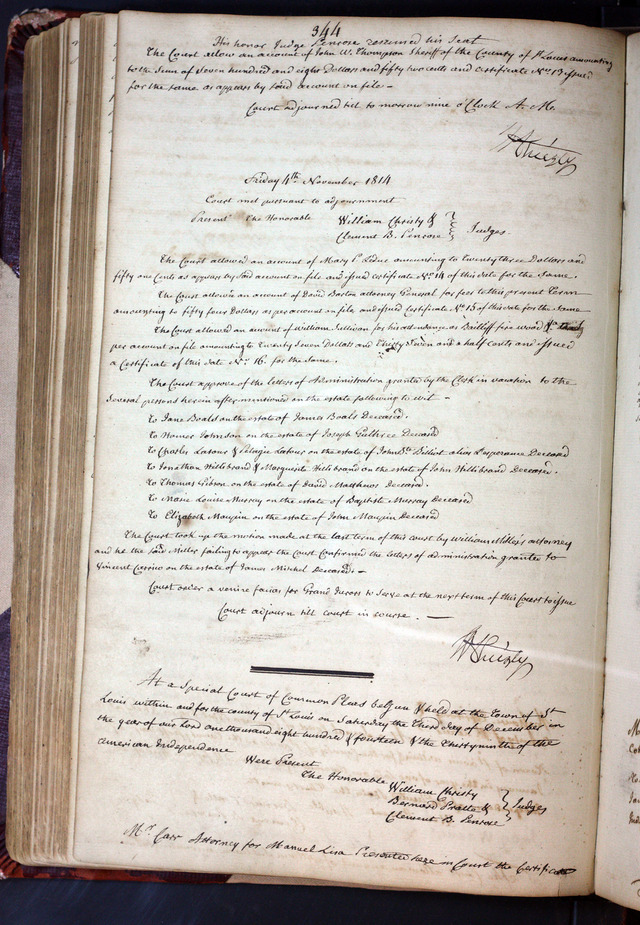 344
His honor Judge Penrose resumed his Seat
The Court allow an account of John W. Thompson Sheriff of the County of St Louis amounting
to the Sum of Seven hundred and eight Dollars and fifty two cents and certificate No 13 issued
for the same as appears by said account on file –
Court adjourned till to morrow nine o'Clock A. M.
Wm Christy
Friday 4th November 1814
Court met pursuant to adjournment
Present The Honorable William Christy &
Clement B. Penrose } Judges
The Court allowed an account of Mary P. Leduc amounting to twenty three Dollars and
fifty one Cents as appears by said account on file and issued certificate No 14 of this date for the Same.
The Court allow an account of David Barton attorney General for fees to this present Term
amounting to fifty four Dollars as per account on file and issued Certificate No 15 of this date for the same
The Court allowed an account of William Sullivan for his attendance as Bailiff fire wood &ca
per account on file amounting to Twenty Seven Dollars and Thirty Seven and a half Cents and issued
a Certificate of this date No 16 for the same.
The Court approve of the letters of Administration granted by the Clerk in vacation to the
Several persons herein after mentioned on the estate following to wit –
To Jane Boals on the estate of James Boals Deceased.
To Joseph Guthree Deceased
To Charles Latour & Pelagie Latour on the estate of John Bte Billiot alias Lesperance Deceased
To Jonathan Hillibrand & Marguerite Hillibrand on the estate of John Hillibrand Deceased.
To Thomas Gibson on the estate of David Matthews Deceased.
To Marie Louise Murray on the estate of Baptiste Murray Deceased
To Elizabeth Maupin on the estate of John Maupin Deceased
The Court took up the motion made at the last term of this court by William Miller's attorney
and he the said Miller failing to appear the Court Confirmed the letters of administration granted to
Vincent on the estate of James Mitchel Deceased. –
Court order a venire facias for Grand Jurors to Serve at the next term of this Court to issue
Court adjourn till court in course. –
Wm Christy
At a Special Court of Common Pleas begun & held at the Town of St
Louis within and for the county of St Louis on Saturday the Third day of December in
the year of our lord one thousand eight hundred & fourteen & the Thirty ninth of the
American Independence
Were Present
The Honorable William Christy
Bernard Pratte & } Judges
Clement B. Penrose
Mr Carr Attorney for Manuel Lisa Presented here in Court the Certificate